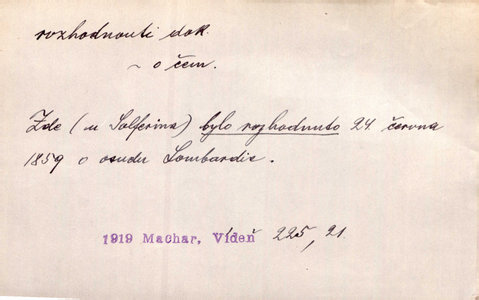 rozhodnouti dok.
~ o čem.
Zde (u Solferina) bylo rozhodnuto 24. června
1859 o osudu Lombardie.
1919 Machar, Vídeň 225, 21.